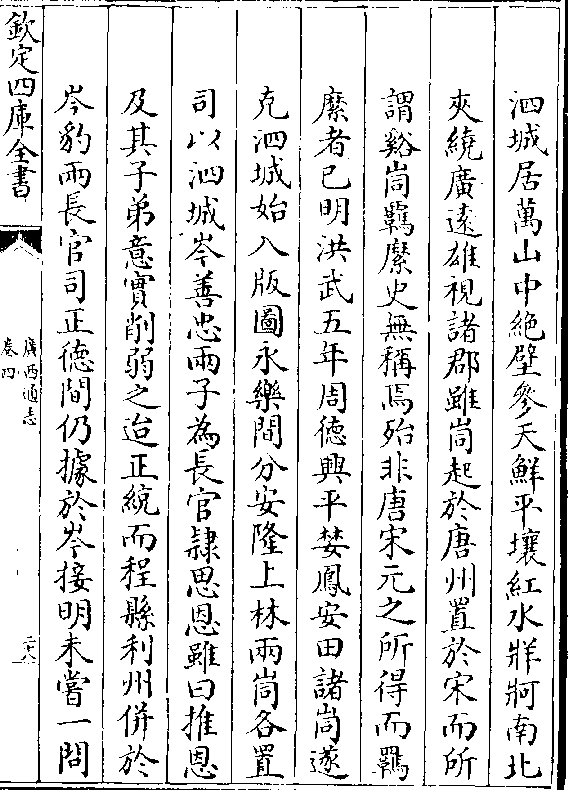 泗城居萬山中絶壁參天鮮平壤紅水牂牁南北
夾繞廣遠雄視諸郡雖峝起於唐州置於宋而所
謂谿峝羈縻史無稱焉殆非唐宋元之所得而羈
縻者已明洪武五年周德興平婪鳳安田諸峝遂
克泗城始入版圖永樂間分安隆上林兩峝各置
司以泗城岑善忠兩子為長官隸思恩雖曰推恩
及其子弟意實削弱之迨正統而程縣利州併於
岑豹兩長官司正德間仍據於岑接明未嘗一問
欽定四庫全書
廣西通志
卷四
二十八